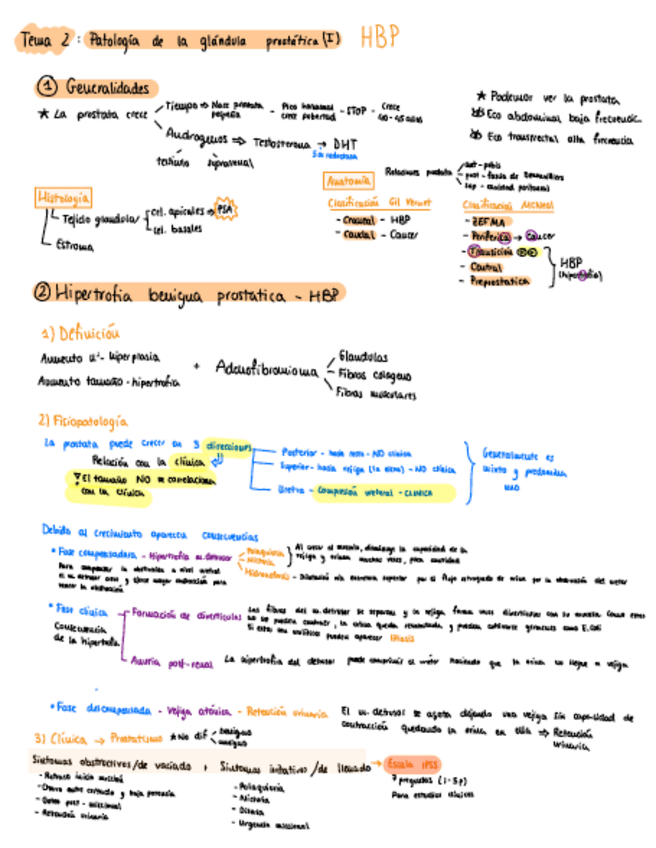 Tema 2: Patología de la glándula prostática (I) HBP
① Generalidades
* La prostata crece
Tiempo ⇒ Nace prostata pequeña - Pico hormonal crece pubertad - STOP - Crece 40-45 años
Androgenos ⇒ Testosterona → DHT
5α reductasa
testiculo suprarrenal
* Podemos ver la prostata
Eco abdominal baja frecuenc.
Eco transrectal alta frecuencia
Histología
Tejido glandular
Cel. apicales ⇒ PSA
Cel. basales
Estroma
Anatomía
Relaciones prostata
ant - pubis
post - fascia de Denonvilliers
sup - cavidad peritoneal
Clasificación Gil Vernet
- Craneal - HBP
- Caudal - Cancer
Clasificación McNeal
- ZEFMA
- Periferica → Cancer
- Transición
- Central
- Preprostatica
HBP
(hipertrofia)
② Hipertrofia benigna prostatica - HBP
1) Definición
Aumento nº - hiperplasia
Aumento tamaño - hipertrofia
+ Adenofibromioma
Glandulas
Fibras colageno
Fibras musculares
2) Fisiopatología
La prostata puede crecer en 3 direcciones
Relación con la clínica
El tamaño NO se correlaciona
con la clínica
Posterior - hacia recto - NO clínica
Superior - hacia vejiga (la eleva) - NO clínica
Uretra - Compresión uretral - CLINICA
Generalmente es
mixto y predomina
uno
Debido al crecimiento aparecen consecuencias
* Fase compensadora - Hipertrofia m. detrusor
Polaquiuria
Nicturia
Al crecer el musculo, disminuye la capacidad de la
vejiga y orinan muchas veces, poca cantidad
Hidronefrosis - Dilatación vía excretora superior por el flujo retrogrado de orina por la obstrucción del ureter
Para compensar la obstrucción a nivel uretral
el m. detrusor crece y ejerce mayor contracción para
vencer la obstrucción
* Fase clínica
Consecuencia
de la hipertrofia
Formación de diverticulos
Las fibras del m. detrusor se separan y la vejiga forma unos diverticulos con su mucosa. Como estos
no se pueden contraer, la orina queda remansada, y pueden cultivarse germenes como E. Coli
litiasis
Anuria post-renal
La hipertrofia del detrusor puede comprimir el ureter haciendo que la orina no llegue a vejiga
* Fase descompensada - vejiga atónica - Retención urinaria
El m. detrusor se agota dejando una vejiga sin capacidad de
contracción quedando la orina en ella ⇒ Retención
urinaria
3) Clínica → Prostatismo * No dif
benigno
maligno
Síntomas obstructivos/de vaciado + Síntomas irritativos/de llenado → Escala IPSS
- Retraso inicio micción
- Chorro entrecortado y baja potencia
- Goteo post-miccional
- Retención urinaria
- Polaquiuria
- Nicturia
- Disuria
- Urgencia miccional
7 preguntas (1-5p)
Para estudios clínicos